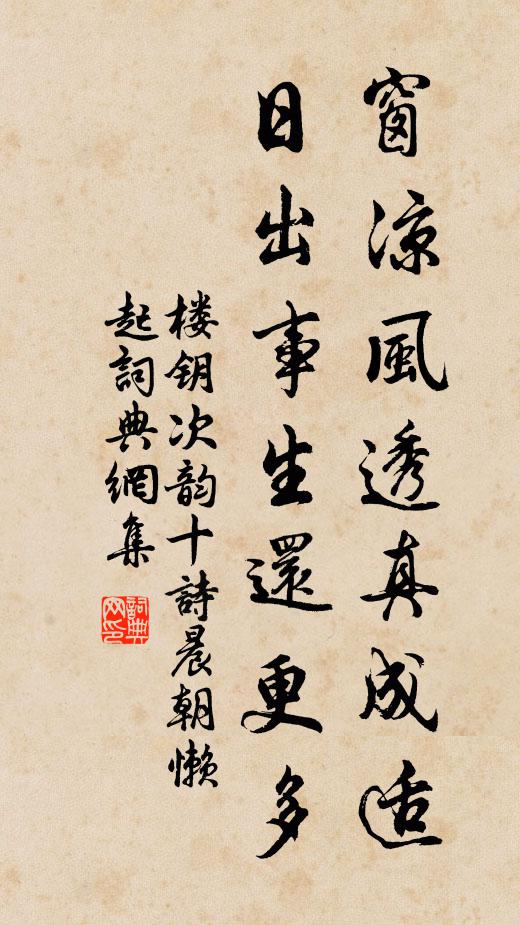 窗涼風透真成适
日出事生還更多
楼钥次韵十詩晨朝懒
起詞典網集
詞典
网印